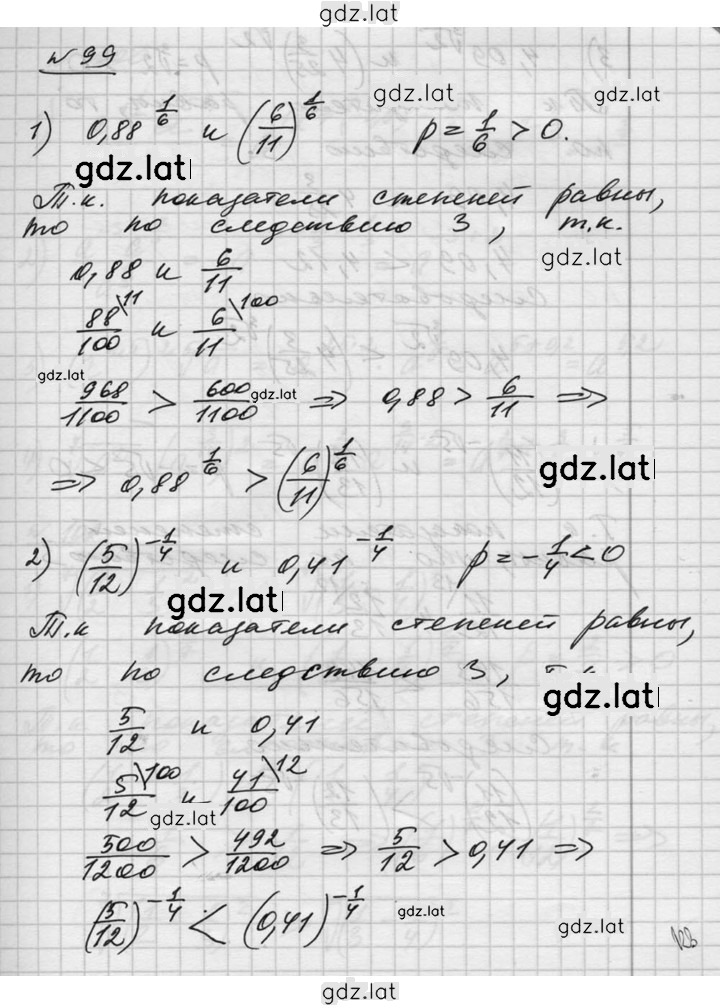 gdz.lat
№99
1) 0,88^(1/6) и (6/11)^(1/6) p = 1/6 > 0.
gdz.lat
gdz.lat
Т.к. показатели степеней равны,
то по следствию 3, т.к.
gdz.lat
0,88 и 6/11
88/100 \11 и 6/11 \100
gdz.lat
968/1100 > 600/1100 ⇒ 0,88 > 6/11 ⇒
gdz.lat
⇒ 0,88^(1/6) > (6/11)^(1/6)
gdz.lat
2) (5/12)^(-1/4) и 0,41^(-1/4) p = -1/4 < 0
gdz.lat
Т.к показатели степеней равны,
то по следствию 3,
gdz.lat
5/12 и 0,41
5/12 \100 и 41/100 \12
gdz.lat
500/1200 > 492/1200 ⇒ 5/12 > 0,41 ⇒
(5/12)^(-1/4) < (0,41)^(-1/4)
gdz.lat
gdz.lat